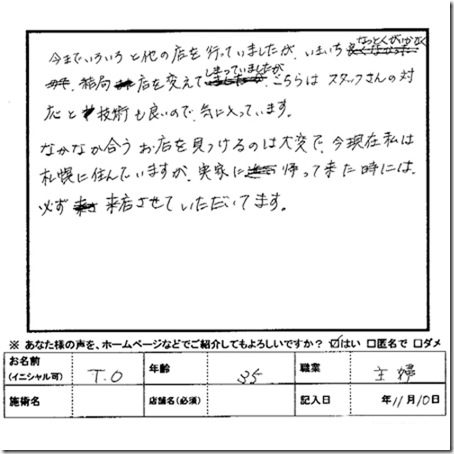 今までいろいろと他の店を行っていましたが、いまいちなっとくがいかなく
結局店を変えてしまっていましたが、こちらはスタッフさんの対
応と技術も良いので、気に入っています。
なかなか合うお店を見つけるのは大変で、今現在私は
札幌に住んでいますが、実家に帰って来た時には、
必ず来店させていただいてます。
※ あなた様の声を、ホームページなどでご紹介してもよろしいですか? ☑はい □匿名で □ダメ
お名前 (イニシャル可) T.O 年齢 35 職業 主婦
施術名 店舗名(必須) 記入日 年11月10日